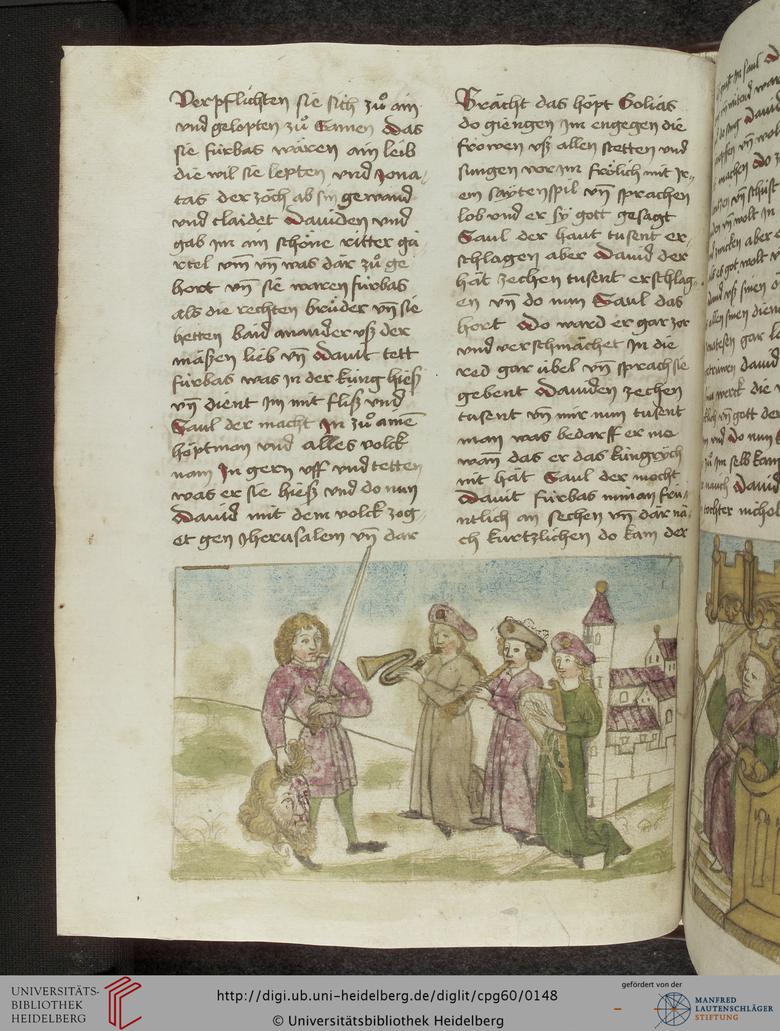 Verpflichten sie sich zuͦ ain
vnd gelopten zuͦ Samen Das
sie fürbas wären ain leib
die wil sie lepten vnd Jona⸗
tas der zoch ab sin gewand
vnd claidet Dauiden vnd
gab Jm ain schöne ritter gü⸗
rtel vm̄ vn̄ was dar zuͦ ge
hort vn̄ sie waren fürbas
als die rechten brüder vn̄ sie
hetten baid anander vsz der
mäszen lieb vn̄ Dauit tett
fürbas was Jn der küng hiesz
vn̄ dient Jm mit flisz vnd
Saul der macht Jn zuͦ aine͂
höptman vnd alles volck
nam Jn gern vff vnd tetten
was er sie hiesz vnd do nun
Dauid mit dem volck zog⸗
et gen Jherusalem vn̄ dar
Brächt das höpt Golias
do giengen Jm engegen die
frowen vsz allen stetten vnd
sungen vor im frölich mit Je⸗
em saytenspil vn̄ sprachen
lob vnd er sy gott gesagt
Saul der haut tusent er⸗
schlagen aber Dauid der
hät zechen tusent erschlag⸗
en vn̄ do nun Saul das
hort Do ward er gar zor
vnd verschmächet Jn die
red gar übel vn̄ sprach sie
gebent Dauiden zechen
tusent vn̄ mir nun tusent
man was bedarff er me
wan̄ das er das küngrych
nit hät Saul der mocht
Dauit fürbas nim̄an frü⸗
ntlich an sechen vn̄ där nä⸗
ch kurtzlichen do kam der
UNIVERSITÄTS-
BIBLIOTHEK
HEIDELBERG
http://digi.ub.uni-heidelberg.de/diglit/cpg60/0148
© Universitätsbibliothek Heidelberg
gefördert von der
MANFRED
LAUTENSCHLÄGER
STIFTUNG